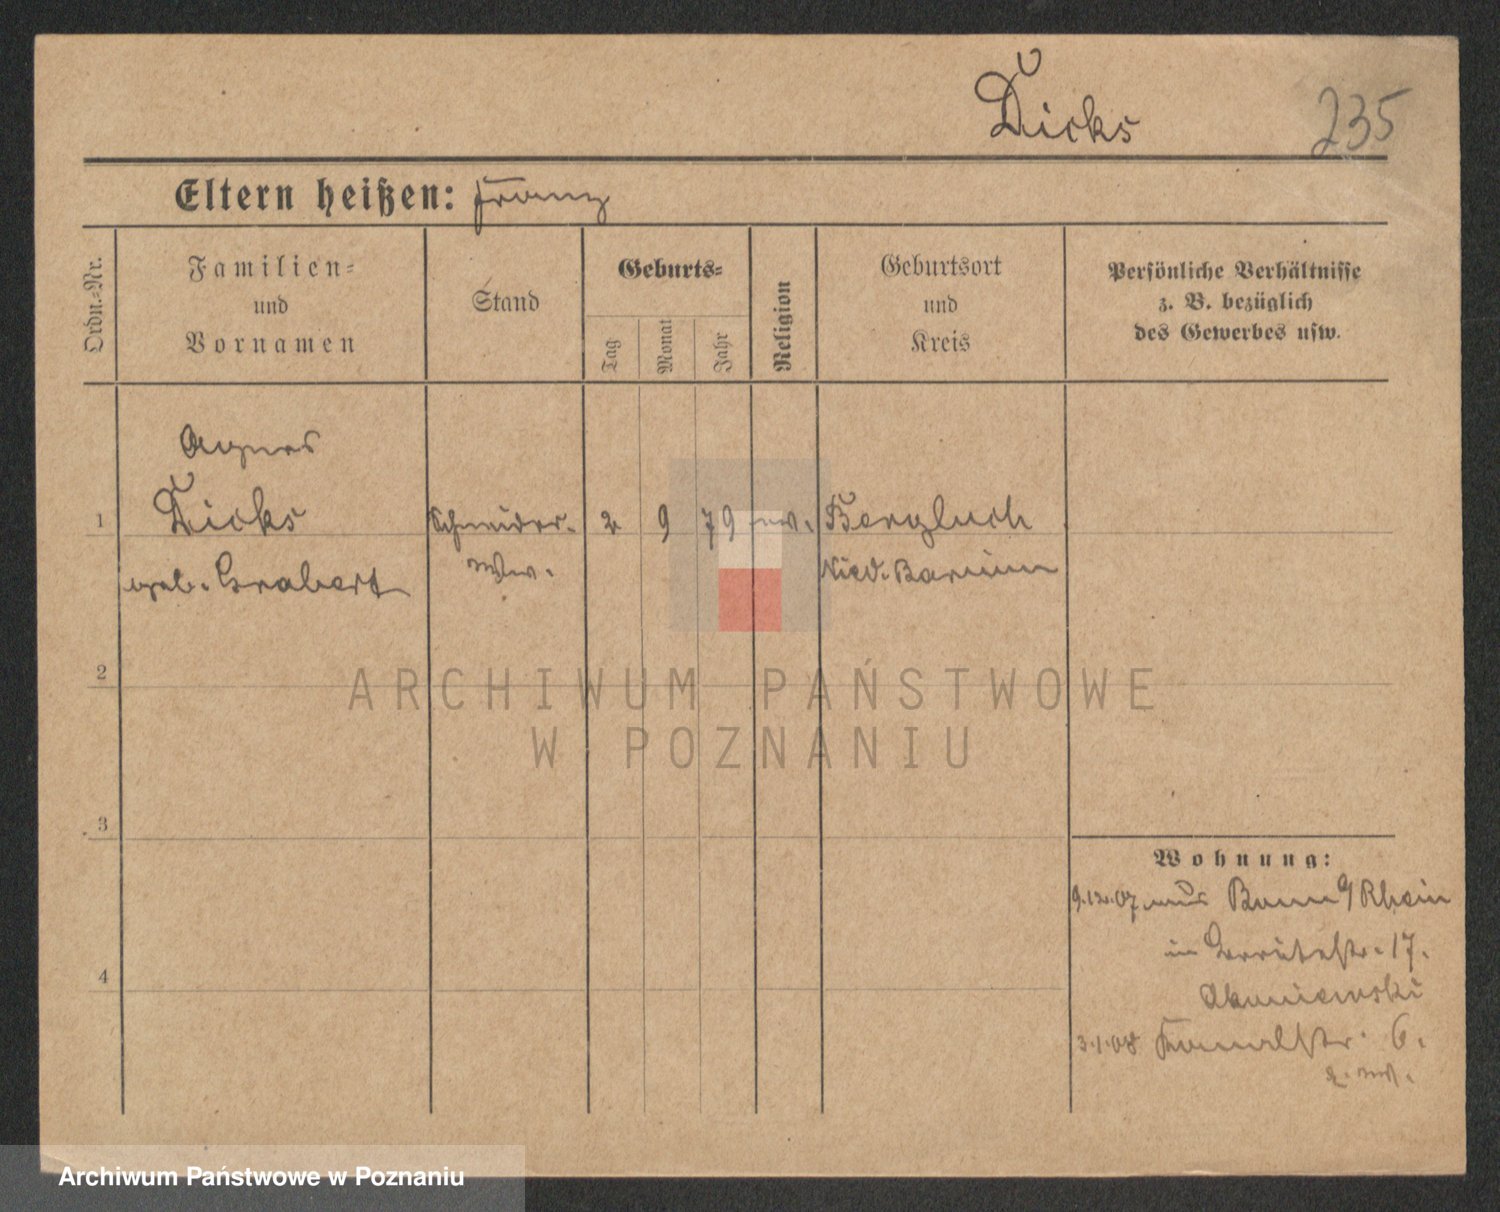 Dicks
235
Eltern heißen: Franz
Ordn.-Nr.
Familien-
und
Vornamen
Stand
Geburts-
Tag
Monat
Jahr
Religion
Geburtsort
und
Kreis
Persönliche Verhältnisse
z. B. bezüglich
des Gewerbes usw.
Agnes
1 Dicks Schneider- 2 9 79 ev. Bergluch
geb. Grabert Ww. Nied. Barnim
2
ARCHIWUM PAŃSTWOWE
W POZNANIU
3
4
Wohnung:
9.12.07 aus Bonn a/Rhein
in 17.
3.1.08 Kanalstr. 6.
Archiwum Państwowe w Poznaniu